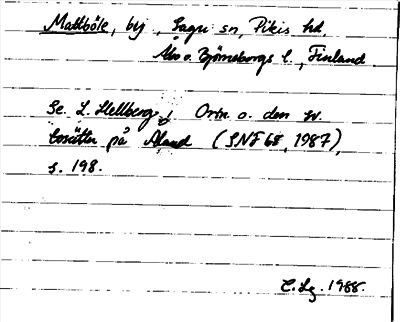 Mattböle, by, Sagu sn, Pikis hd,
Åbo o. Björneborgs l., Finland
Se L. Hellberg, Ortn. o. den sv.
bosättn på Åland (SNF 68, 1987),
s. 198.
C. Lg. 1988.